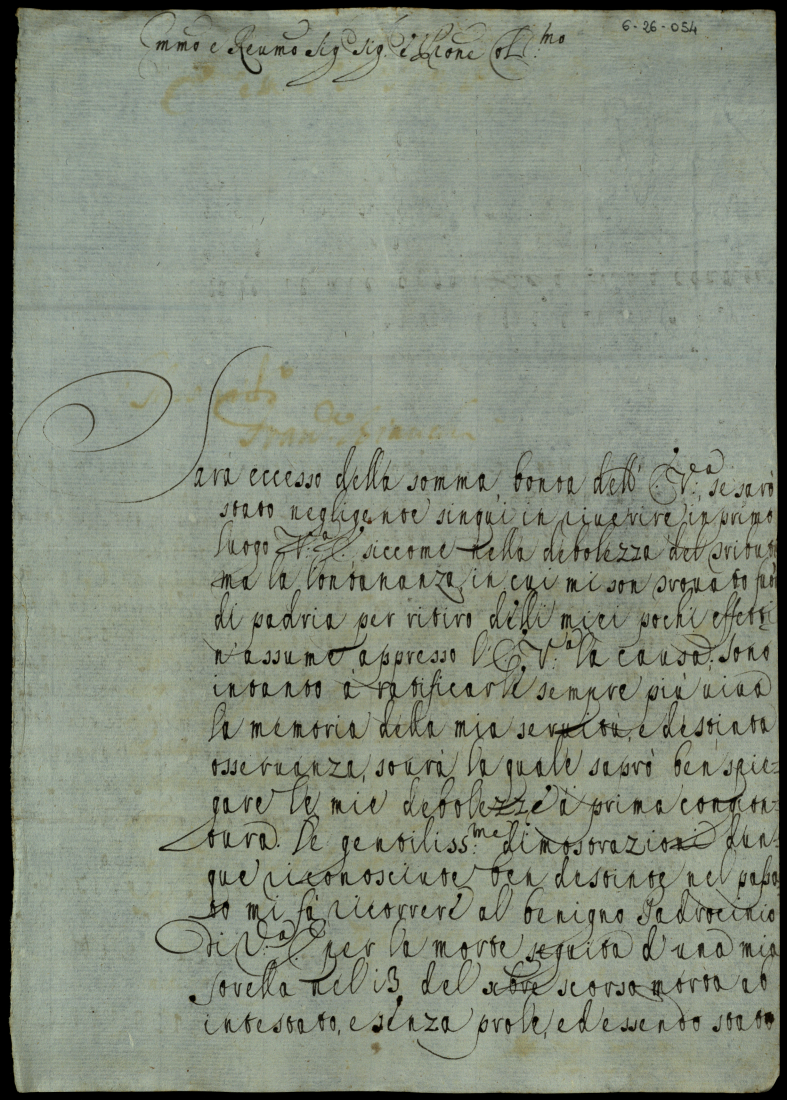 6-26-054
Emmo e Reumo Sig.r Sig.r e Pròne Col.mo
Sarà eccesso della somma bontà dell' E.V.a, se sarò
stato negligente sin quì in riuerire in primo
luogo V.a E. siccome nella debolezza del tributo
ma la lontananza, in cui mi son trouato fuòr
di padria per ritiro delli miei pochi effetti
n'assume appresso l'E.V.a la causa. Sono
intanto à ratificarle sempre più uiua
la memoria della mia seruitù, e destinta
osseruanza, soura la quale saprò ben spie=
gare le mie debolezze à prima congion=
tura. Le gentiliss.me dimostrazioni dun=
que riconosciute ben destinte nel passa
to mi fà ricorrere al benigno Padrocinio
di V.a E. per la morte seguita d'una mia
sorella nel 13 del xbre scorso morta ab
intestato, e senza prole, ed essendo stato